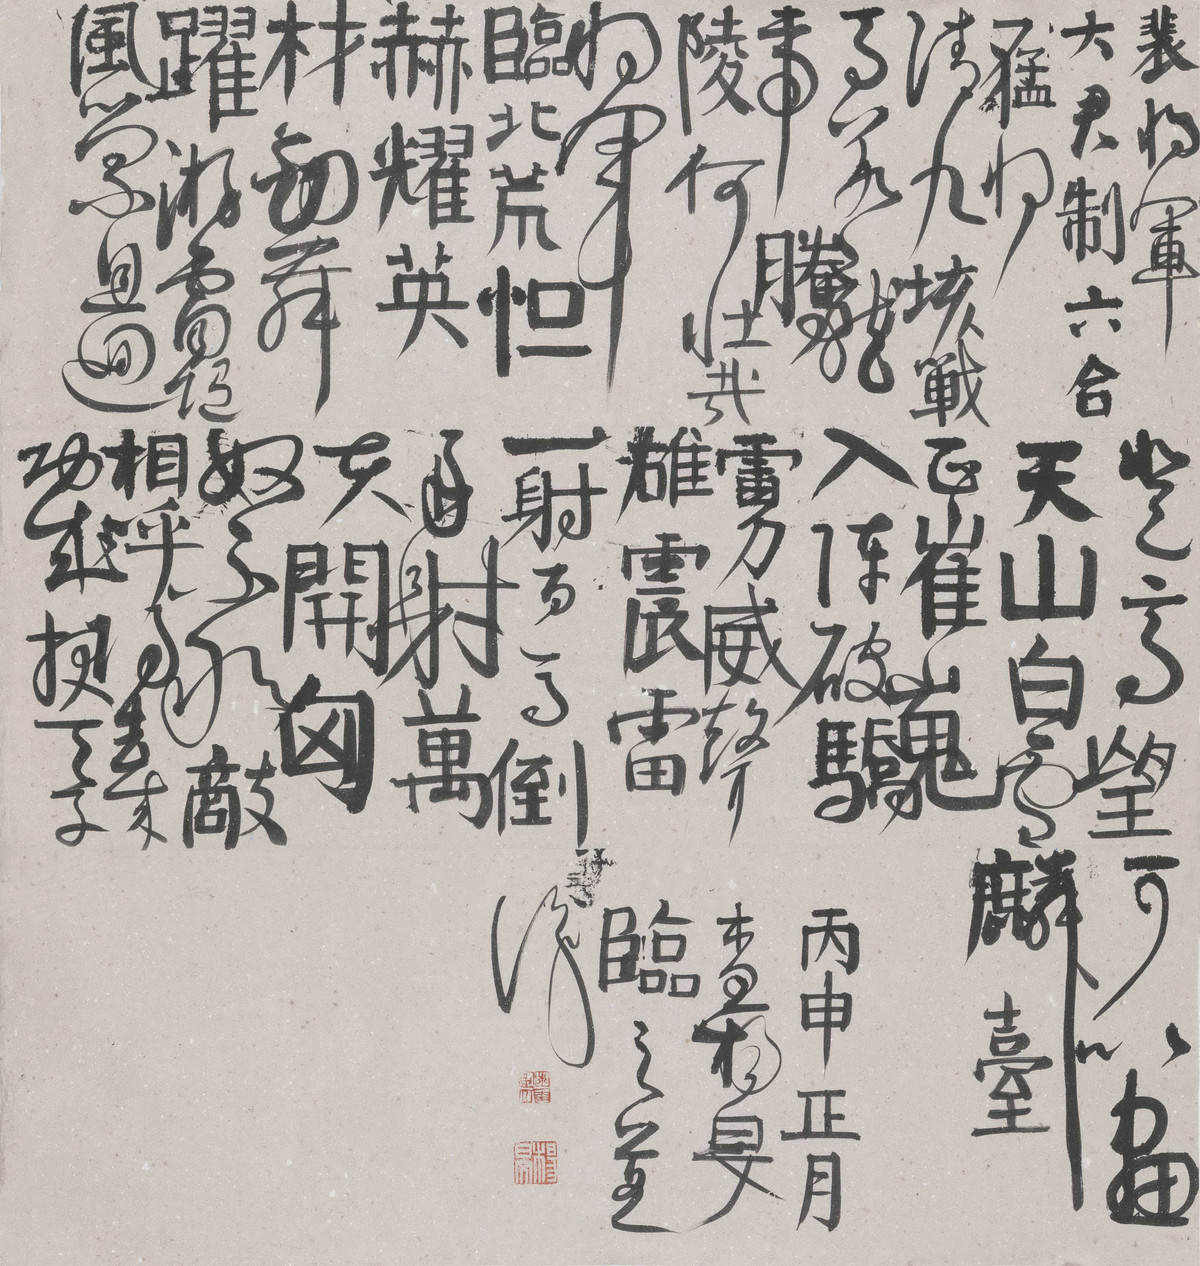 裴將軍
大君制六合
猛將
清九垓戰
馬若龍
虎騰
陵何壯哉
將軍
臨北荒怛
赫耀英
材劍舞
躍游電隨
風縈且迴
登高望
天山白雲
正崔嵬
入陣破驕
虜威聲
雄震雷
一射百馬倒
再射萬
夫開匈
奴不敢敵
相呼歸去來
功成報天子
可以畫
麟臺
丙申正月
楊旻
臨之並
記